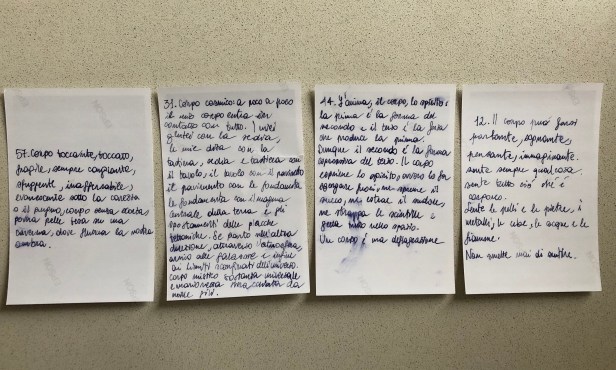 57. Corpo toccante, toccato,
fragile, sempre cangiante,
sfuggente, inafferrabile,
evanescente sotto la carezza
o il pugno, corpo senza scorza
povera pelle tesa su una
caverna, dove fluttua la nostra
ombra.
31. Corpo cosmico: a poco a poco
il mio corpo entra in
contatto con tutto. I miei
glutei con la sedia,
le mie dita con la
tastiera, sedia e tastiera con
il tavolo, il tavolo con il pavimento
il pavimento con le fondamenta
le fondamenta con il magma
centrale della terra e gli
spostamenti delle placche
tettoniche. Se parto nell'altra
direzione, attraverso l'atmosfera
arrivo alle galassie e infine
ai limiti sconfinati dell'universo.
corpo mistico sostanza universale
e marionetta tirata da
mille fili.
44. L'anima, il corpo, lo spirito:
la prima è la forma del
secondo e il terzo è la forza
che produce la prima.
Dunque il secondo è la forma
espressiva del terzo. Il corpo
esprime lo spirito, ovvero lo fa
sgorgare fuori, ne spreme il
succo, ne estrae il sudore,
ne strappa le scintille e
getta tutto nello spazio.
Un corpo è una deflagrazione
12. Il corpo può farsi
parlante, sognante,
pensante, immaginante.
Sente sempre qualcosa.
Sente tutto ciò che è
corporeo.
Sente le pelli e le pietre, i
metalli, le erbe, le acque e le
fiamme.
Non smette mai di sentire.